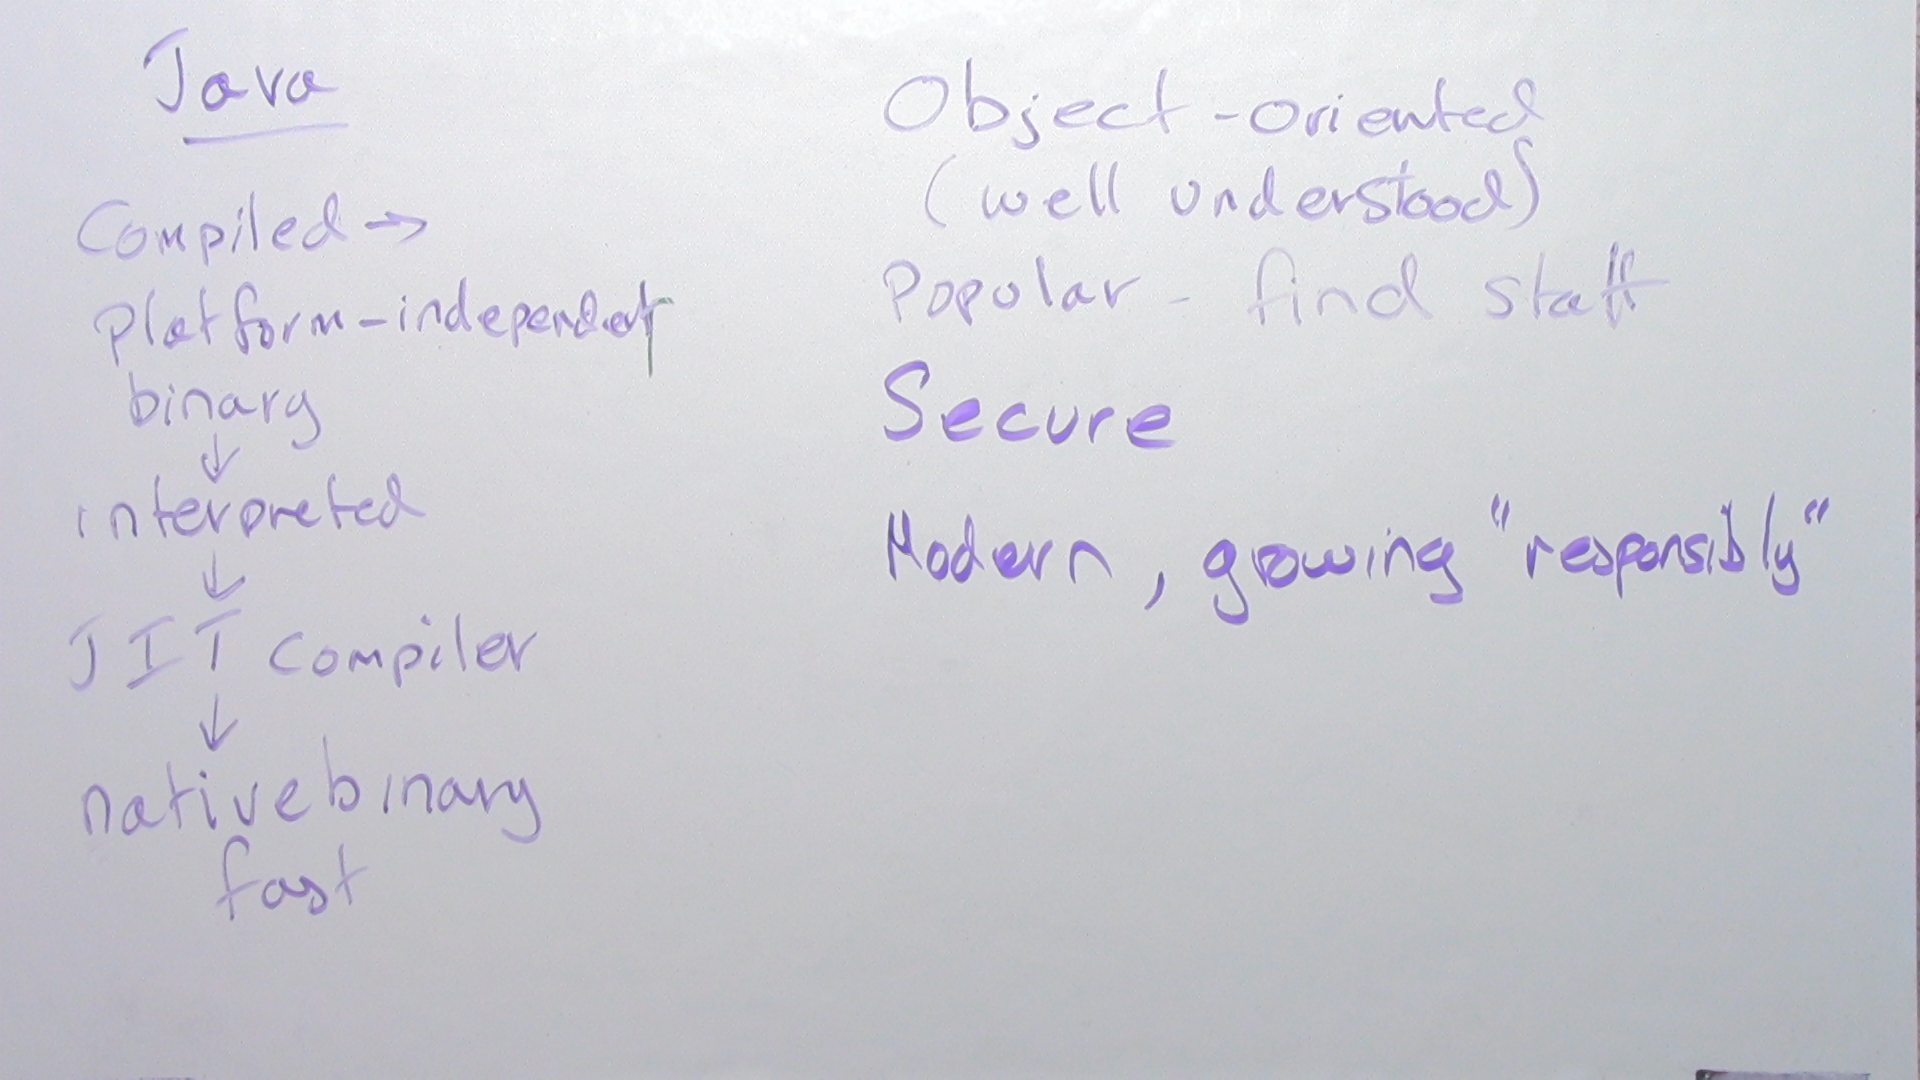 Java
Compiled →
platform-independent
binary
↓
interpreted
↓
JIT compiler
↓
native binary
fast
Object-oriented
(well understood)
Popular - find staff
Secure
Modern, growing "responsibly"